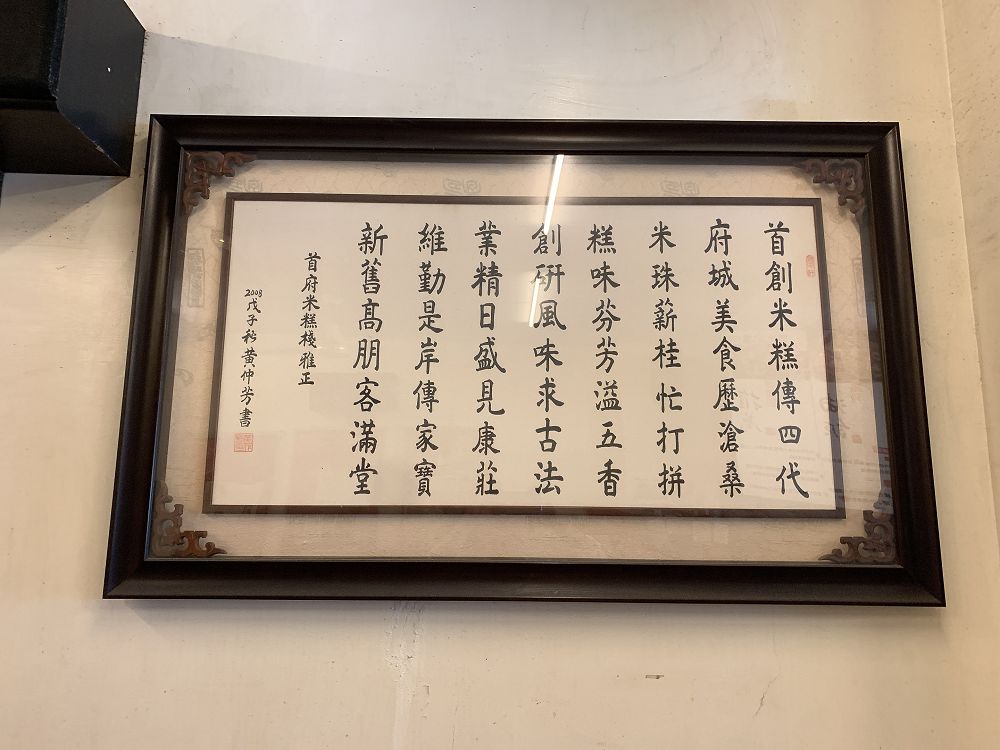 首創米糕傳四代
府城美食歷滄桑
米珠薪桂忙打拼
糕味芬芳溢五香
創研風味求古法
業精日盛見康莊
維勤是岸傳家寶
新舊高朋客滿堂
首府米糕棧雅正
2008戊子秋黃仲芳書